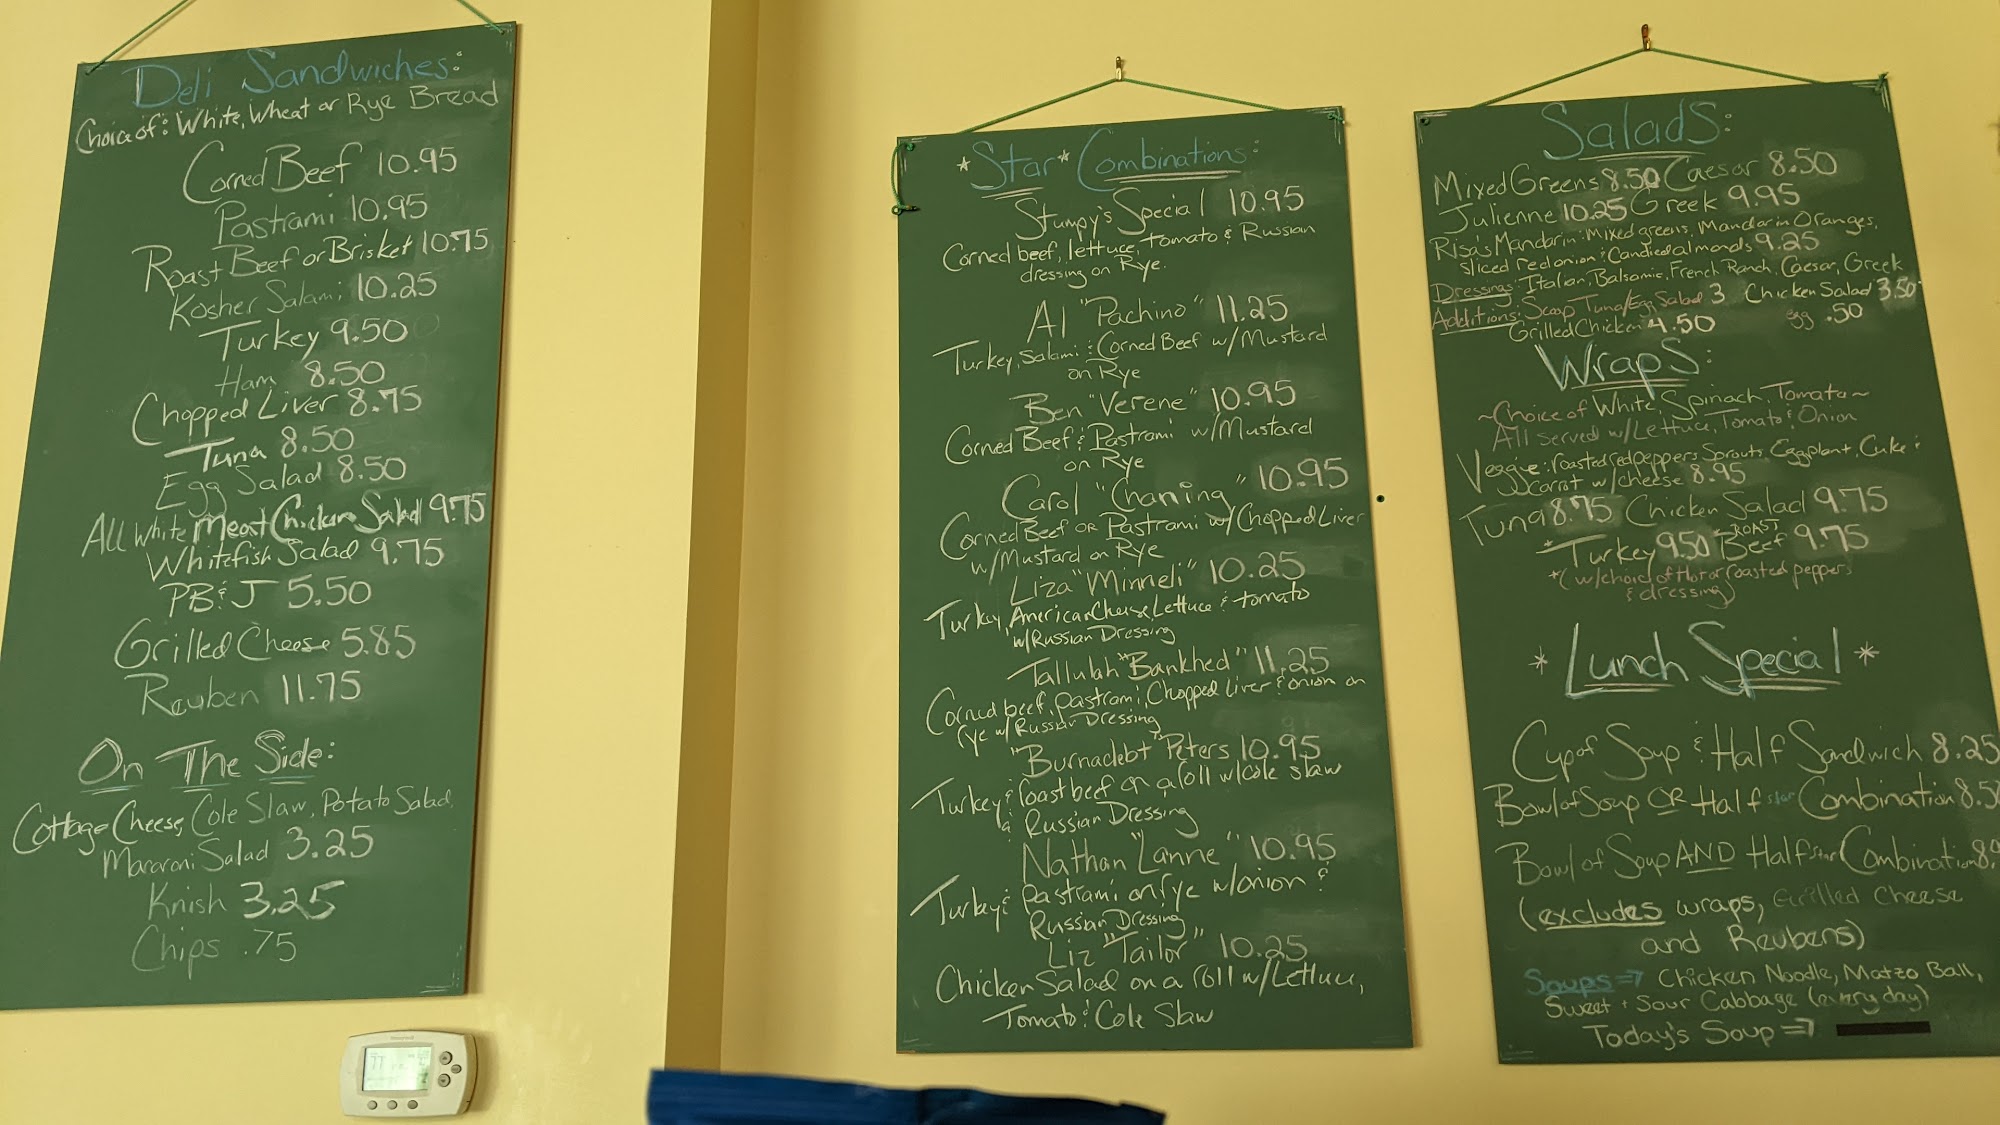 Deli Sandwiches:
Choice of: White, Wheat or Rye Bread
Corned Beef 10.95
Pastrami 10.95
Roast Beef or Brisket 10.75
Kosher Salami 10.25
Turkey 9.50
Ham 8.50
Chopped Liver 8.75
Tuna 8.50
Egg Salad 8.50
All White Meat Chicken Salad 9.75
Whitefish Salad 9.75
PB & J 5.50
Grilled Cheese 5.85
Reuben 11.75
On The Side:
Cottage Cheese, Cole Slaw, Potato Salad,
Macaroni Salad 3.25
Knish 3.25
Chips .75
*Star* Combinations:
Stumpy's Special 10.95
Corned beef, lettuce, tomato & Russian
dressing on Rye.
Al "Pachino" 11.25
Turkey, Salami & Corned Beef w/Mustard
on Rye
Ben "Verene" 10.95
Corned Beef & Pastrami w/Mustard
on Rye
Carol "Chaning" 10.95
Corned Beef OR Pastrami w/Chopped Liver
w/Mustard on Rye
Liza "Minneli" 10.25
Turkey, American Cheese, Lettuce & tomato
w/Russian Dressing
Tallulah "Bankhed" 11.25
Corned beef, pastrami, Chopped Liver & onion on
rye w/Russian Dressing
"Burnadebt" Peters 10.95
Turkey & roast beef on a roll w/cole slaw
& Russian Dressing
Nathan "Lanne" 10.95
Turkey & pastrami on rye w/onion &
Russian Dressing
Liz "Tailor" 10.25
Chicken Salad on a roll w/Lettuce,
Tomato & Cole Slaw
Salads:
Mixed Greens 8.50 Caesar 8.50
Julienne 10.25 Greek 9.95
Risa's Mandarin: Mixed greens, Mandarin Oranges,
sliced red onion & Candied almonds 9.25
Dressings: Italian, Balsamic, French Ranch, Caesar, Greek
Additions: Scoop Tuna/Egg Salad 3 Chicken Salad 3.50
Grilled Chicken 4.50 egg .50
Wraps:
~Choice of White, Spinach, Tomato~
All served w/Lettuce, Tomato & Onion
Veggie: roasted red peppers, Sprouts, Eggplant, Cuke &
carrot w/cheese 8.95
Tuna 8.75 Chicken Salad 9.75
*Turkey 9.50 ROAST Beef 9.75
*(w/choice of Hot or roasted peppers
& dressing)
*Lunch Special*
Cup of Soup & Half Sandwich 8.25
Bowl of Soup OR Half star Combination 8.5
Bowl of Soup AND Half star Combination
(excludes wraps, Grilled Cheese
and Reubens)
Soups => Chicken Noodle, Matzo Ball,
Sweet + Sour Cabbage (everyday)
Today's Soup =>